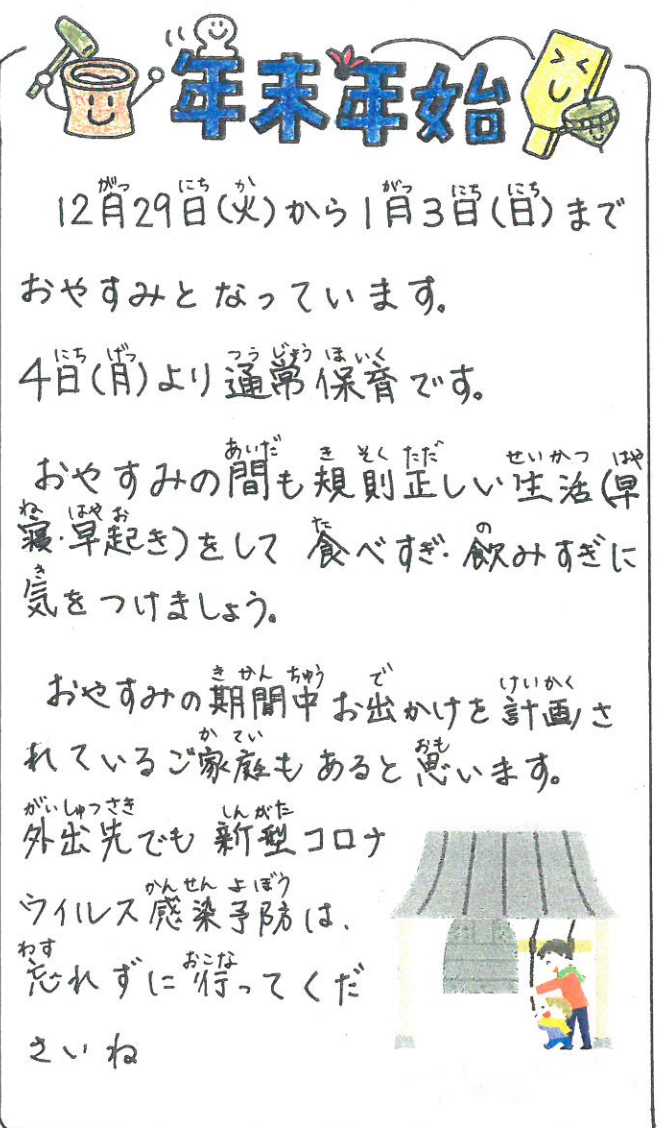 年末年始
12月29日(火)から1月3日(日)まで
おやすみとなっています。
4日(月)より通常保育です。
おやすみの間も規則正しい生活(早
寝・早起き)をして 食べすぎ・飲みすぎに
気をつけましょう。
おやすみの期間中お出かけを計画さ
れているご家庭もあると思います。
外出先でも新型コロナ
ウイルス感染予防は、
忘れずに行ってくだ
さいね